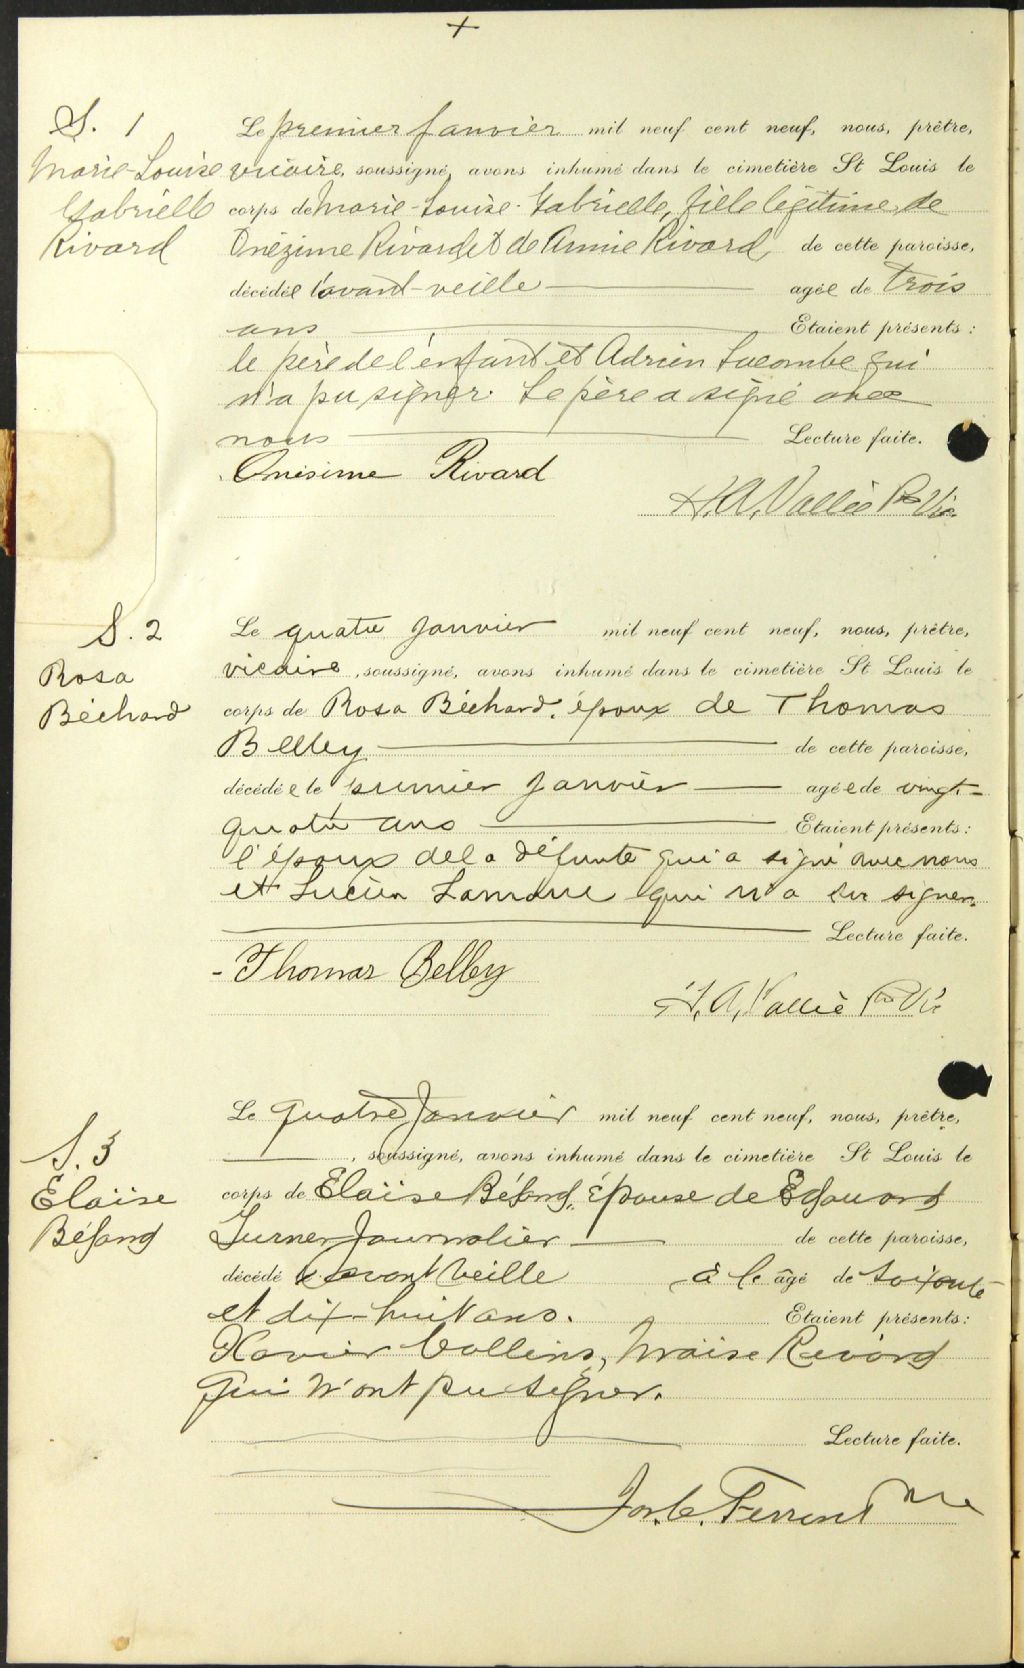 +
S. 1
Marie-Louise
Gabrielle
Rivard
Le premier janvier mil neuf cent neuf, nous, prêtre,
vicaire, soussigné, avons inhumé dans le cimetière St Louis le
corps de Marie-Louise-Gabrielle, fille légitime de
Onézime Rivard et de Annie Rivard, de cette paroisse,
décédée l'avant-veille agée de trois
ans Etaient présents:
le père de l'enfant et Adrien Lacombe qui
n'a pu signer. Le père a signé avec
nous Lecture faite.
Onésime Rivard
H. A. Vallée Ptre Vic.
S. 2
Rosa
Béchard
Le quatre janvier mil neuf cent neuf, nous, prêtre,
vicaire, soussigné, avons inhumé dans le cimetière St Louis le
corps de Rosa Béchard, époux de Thomas
Belley de cette paroisse,
décédée le premier janvier agée de vingt-
quatre ans Etaient présents:
l'époux de la défunte qui a signé avec nous
et Lucien qui n'a su signer.
Lecture faite.
- Thomas Belley
H. A. Vallée Ptre Vic
S. 3
Elaïse
Le quatre Janvier mil neuf cent neuf, nous, prêtre,
, soussigné, avons inhumé dans le cimetière St Louis le
corps de Elaïse épouse de Edouard
Turner Journalier de cette paroisse,
décédé l'avant veille à l' âgé de soixante
et dix-huit ans. Etaient présents:
Xavier Collins, Moïse
qui n'ont pu signer.
Lecture faite.
Jos. C.